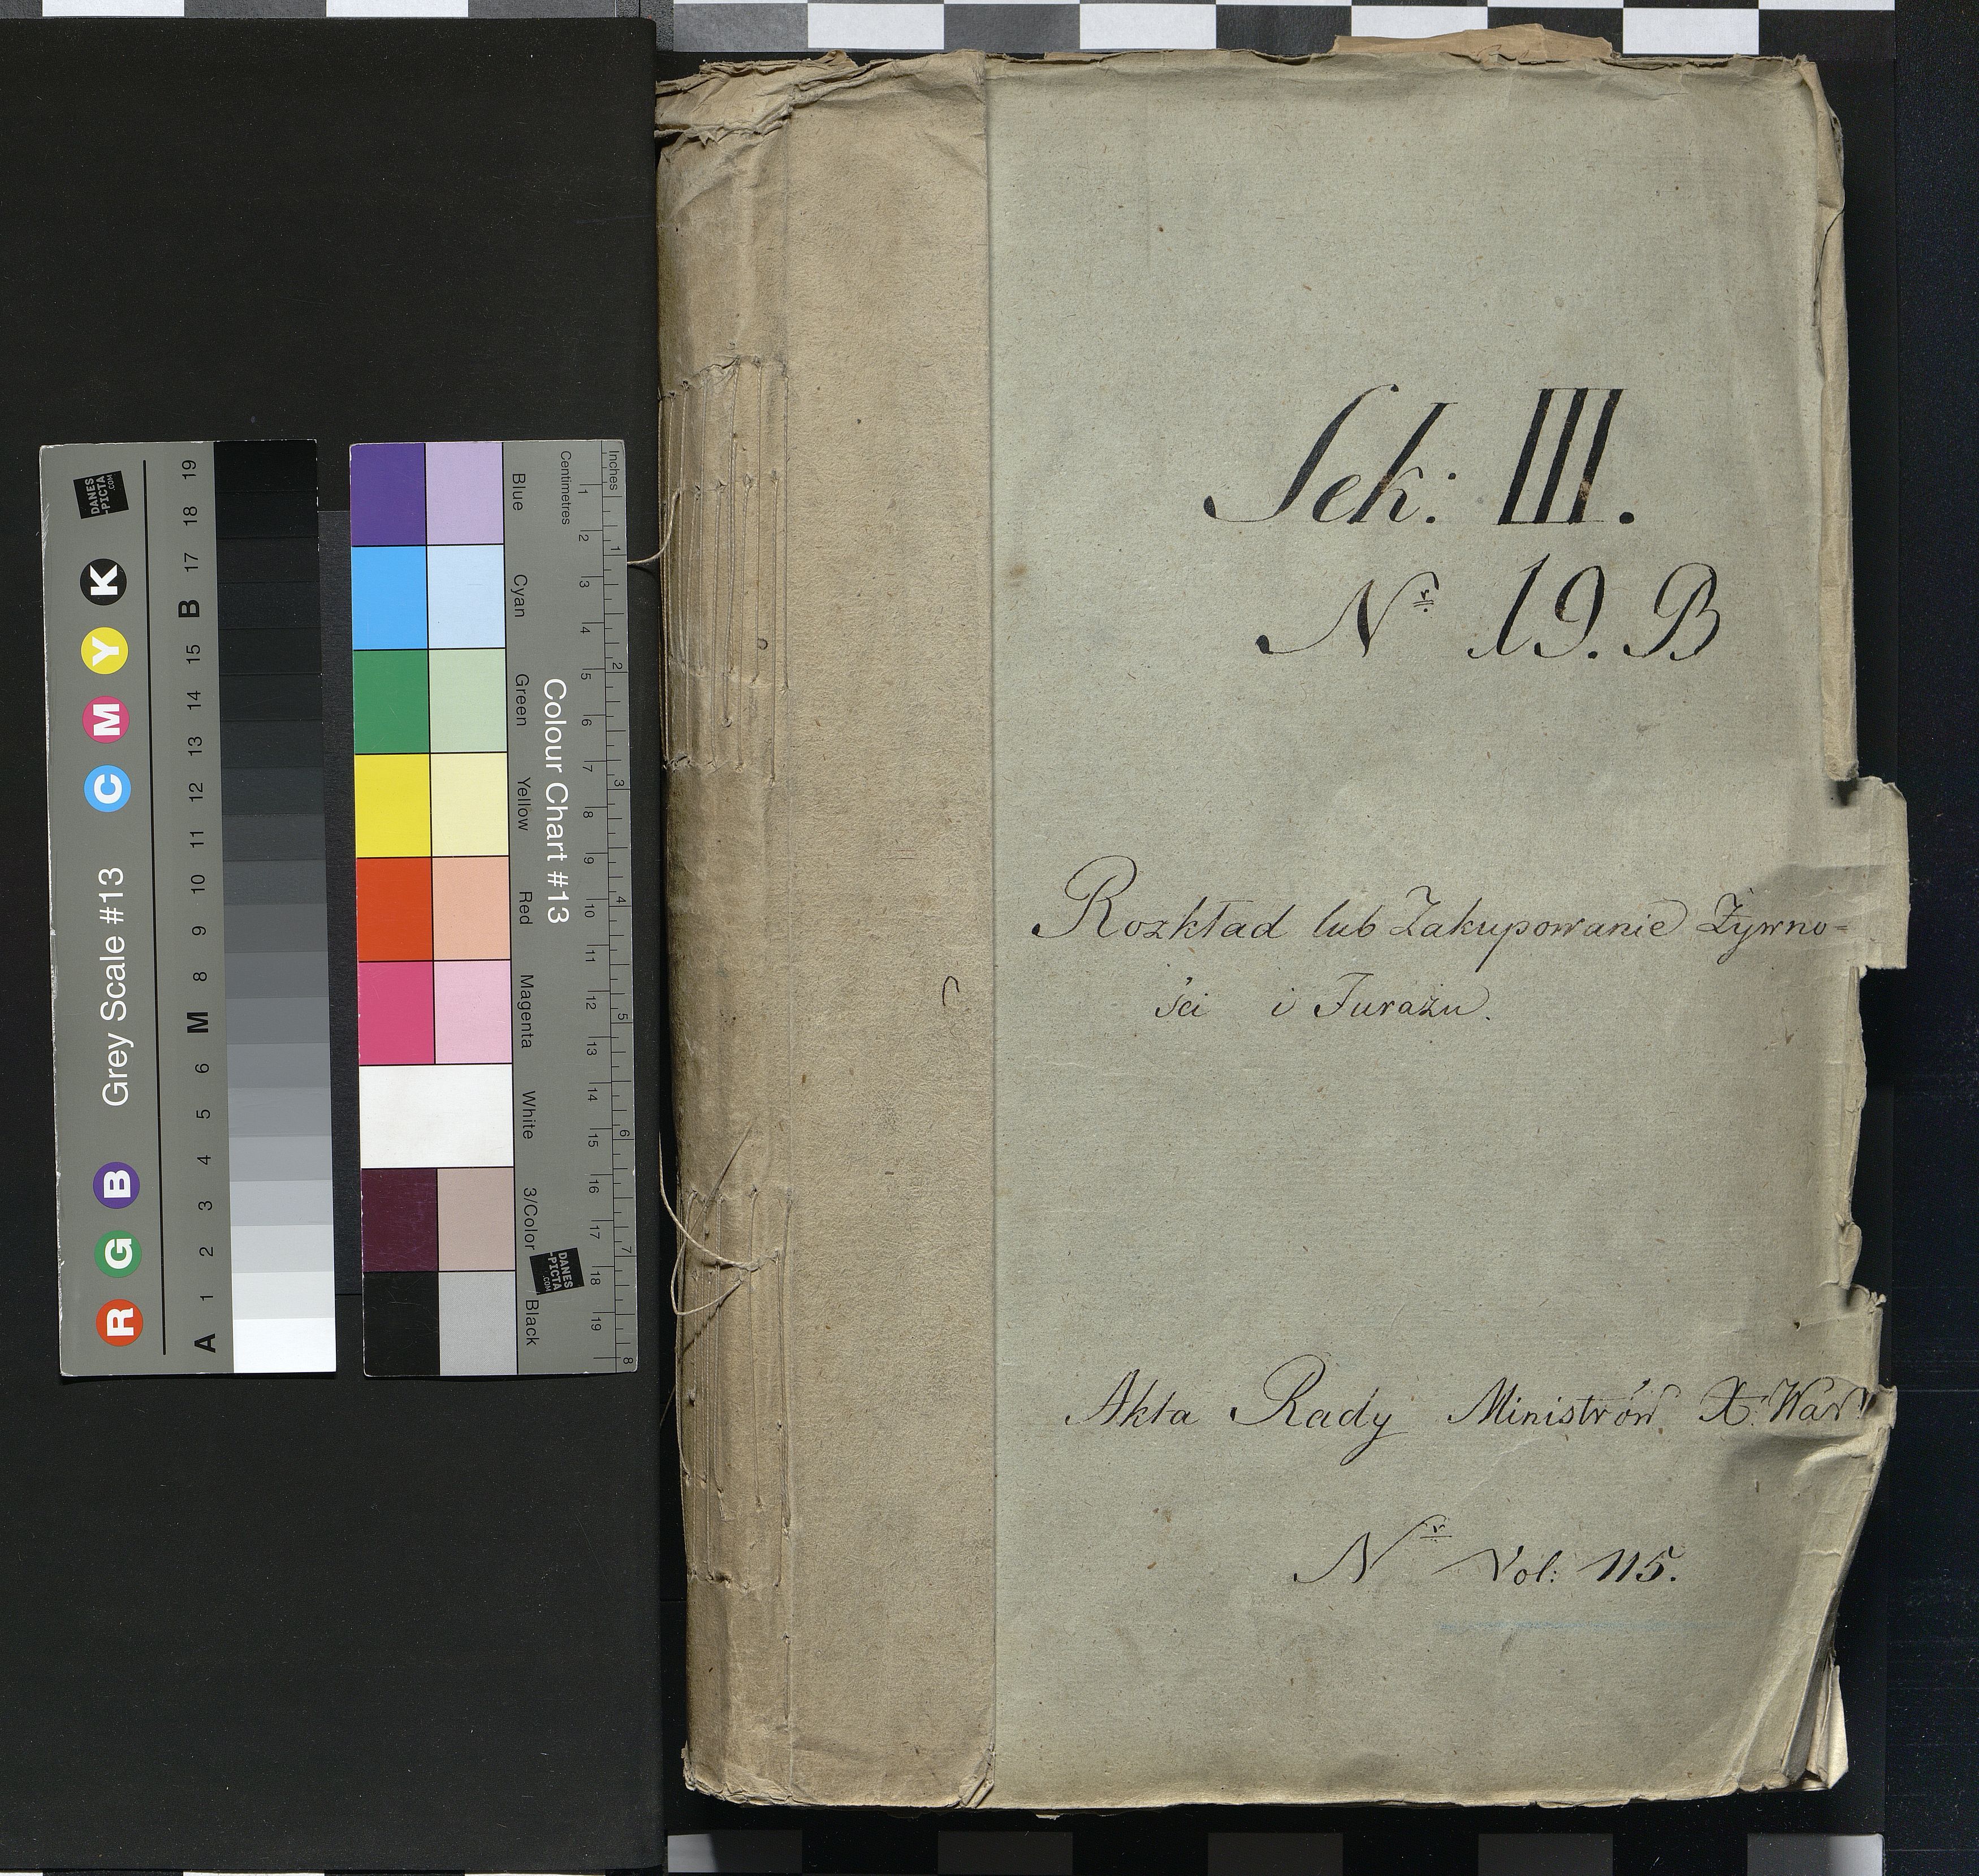 Sek: III.
Nr 19. B
Rozkład lub Zakupowanie Żywno=
ści i Furażu.
Akta Rady Ministrów X. War:
Nr Vol: 115.
Grey Scale #13
R G B C M Y K
A 1 2 3 4 5 6 M 8 9 10 11 12 13 14 15 B 17 18 19
DANES
-PICTA
.COM
Colour Chart #13
Blue Cyan Green Yellow Red Magenta White 3/Color Black
Centimetres 1 2 3 4 5 6 7 8 9 10 11 12 13 14 15 16 17 18 19
Inches 1 2 3 4 5 6 7 8
DANES
-PICTA
.COM